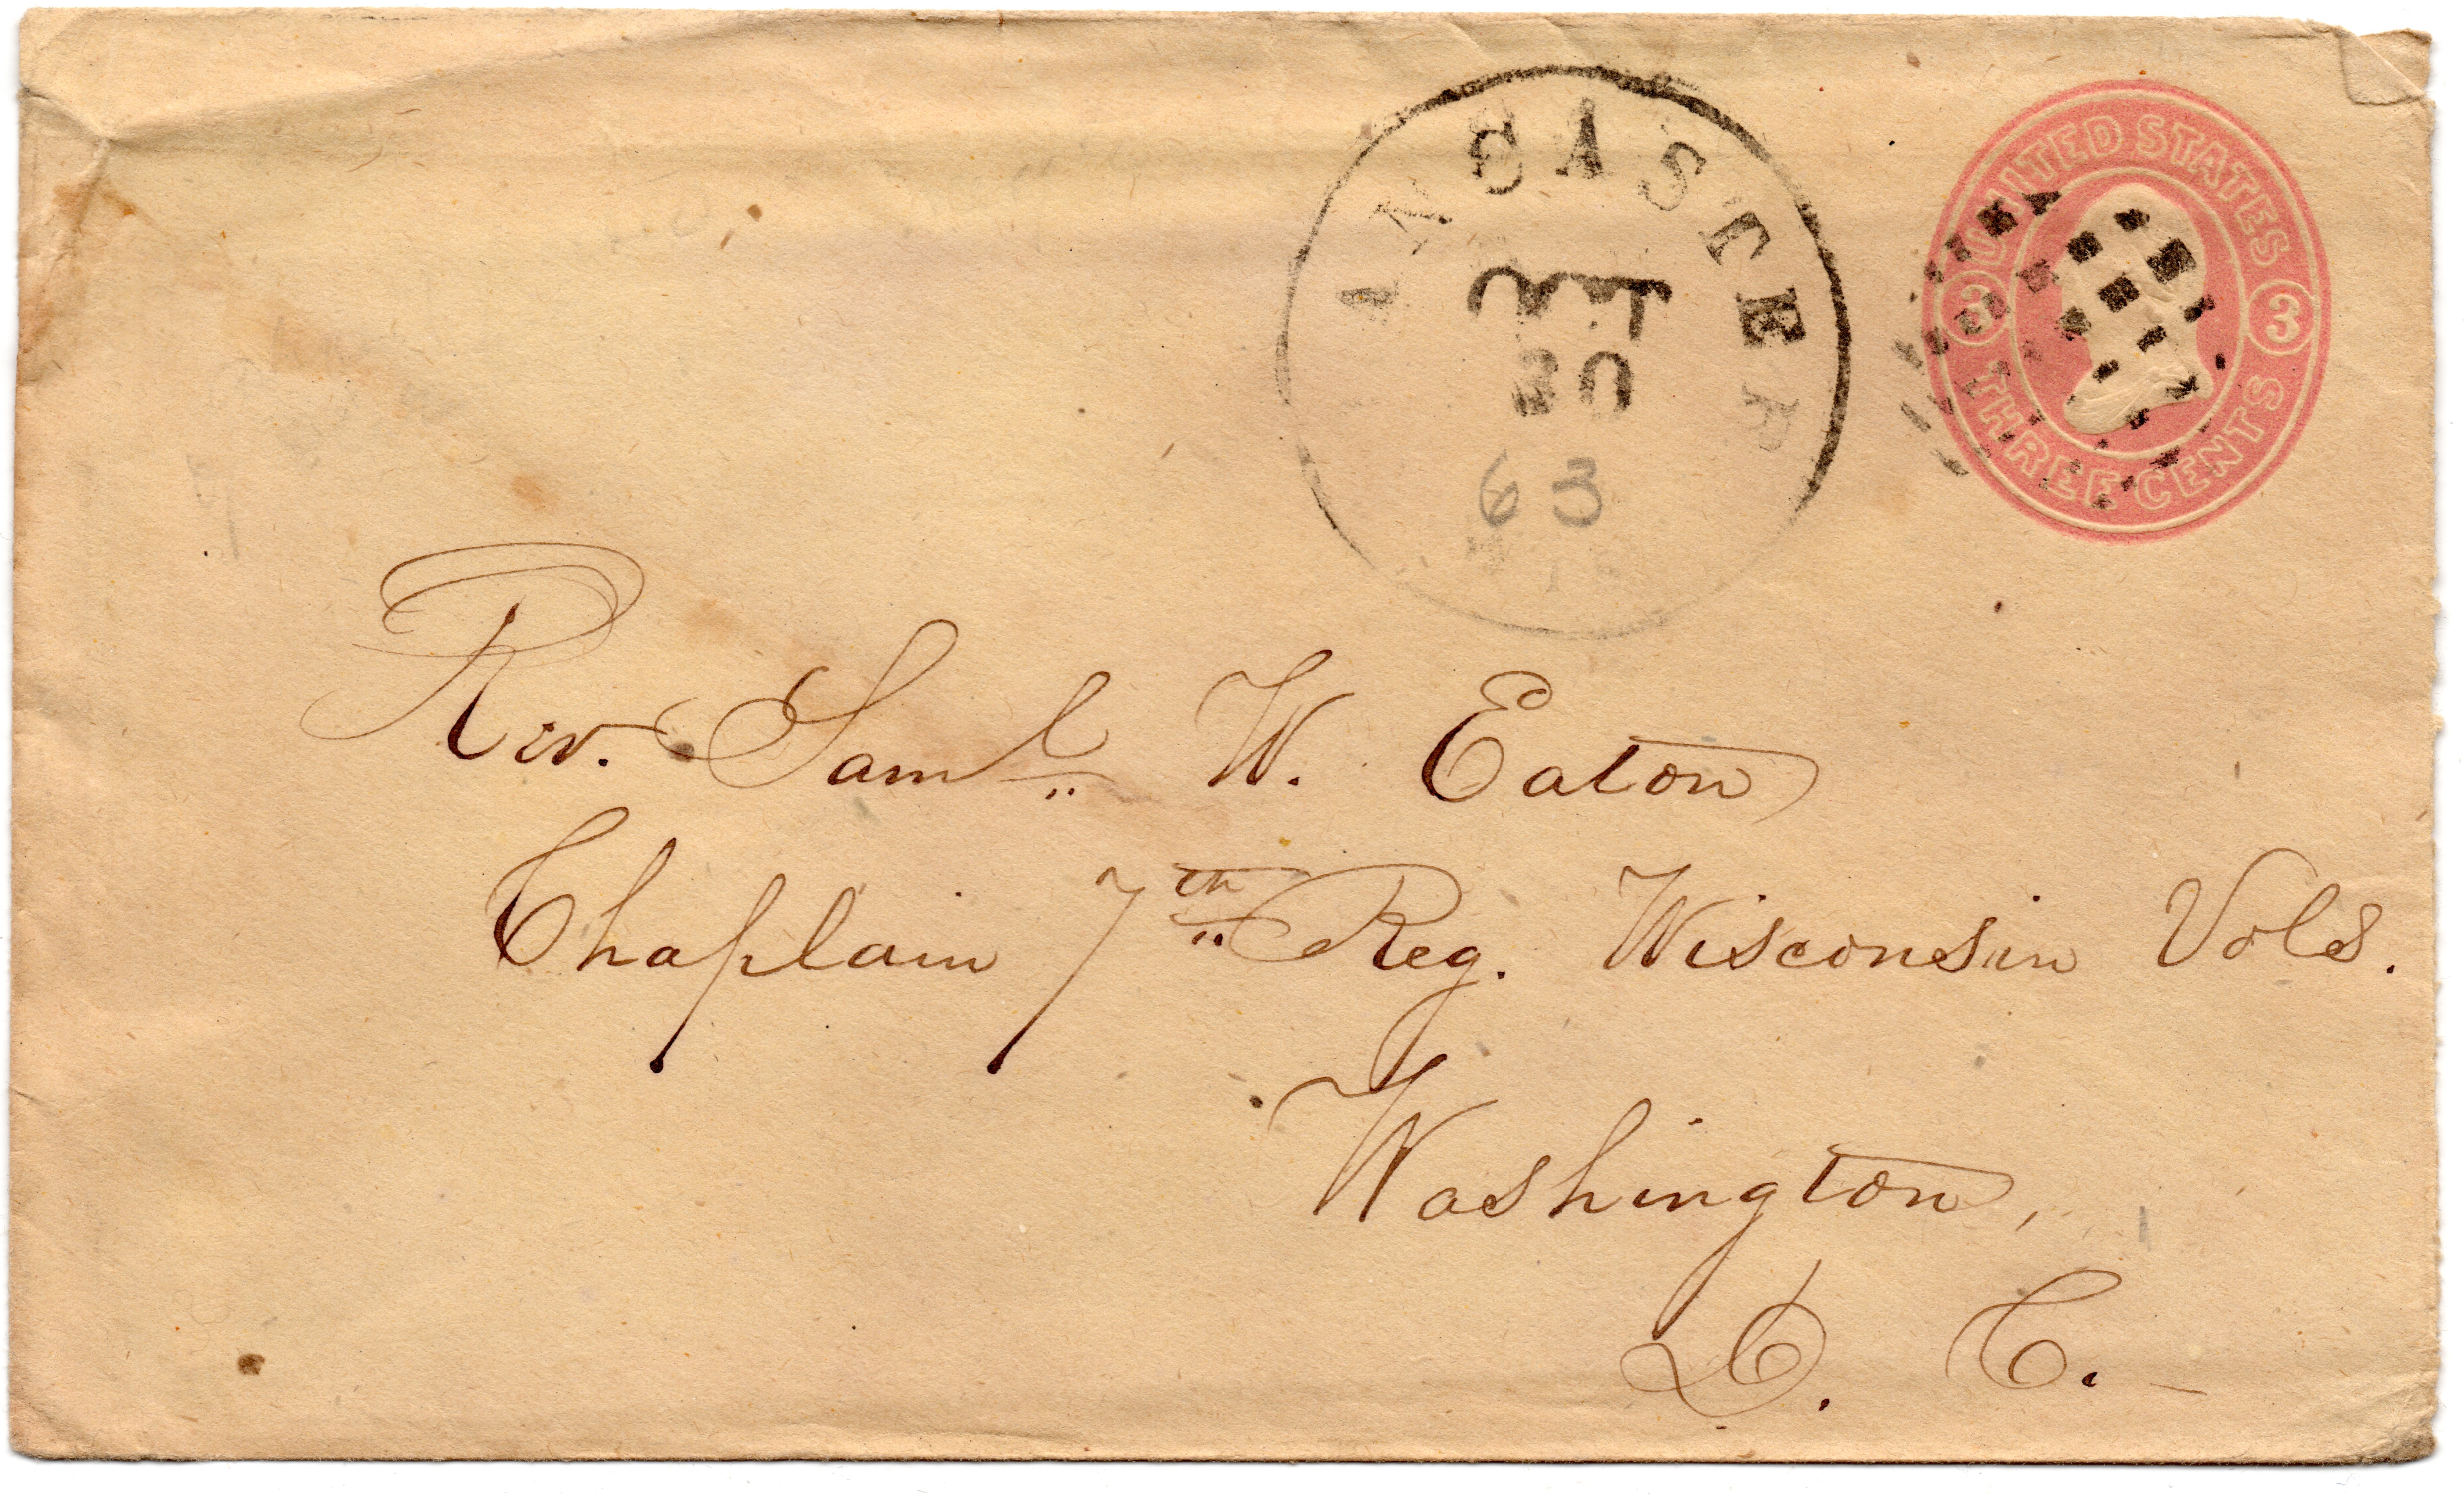 ANCASTER
Jan
20
63
WIS
UNITED STATES
3 3
THREE CENTS
Rev. Saml. W. Eaton
Chaplain 7th Reg. Wisconsin Vols.
Washington,
D. C.